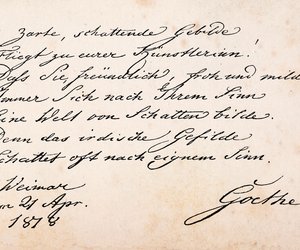 Zarte, schattende Gebilde
Fliegt zu eurer Künstlerinn!
Daß Sie, freundlich, froh und milde
Immer Sich nach Ihrem Sinn
Eine Welt von Schatten bilde.
Denn das irdische Gefilde
Schattet oft nach eignem Sinn.
Weimar
21 Apr.
1818
Goethe